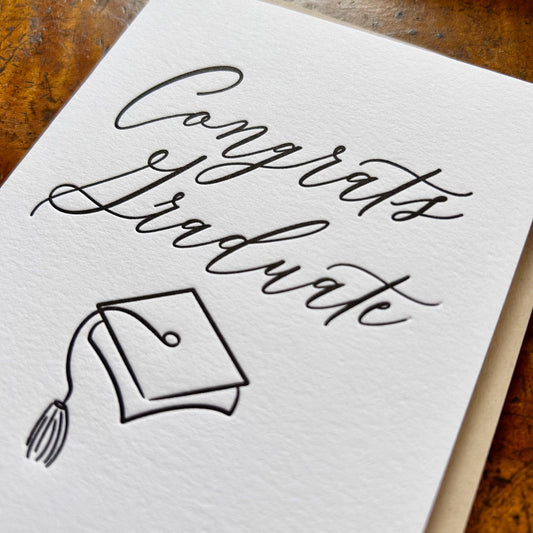 Congrats
Graduate